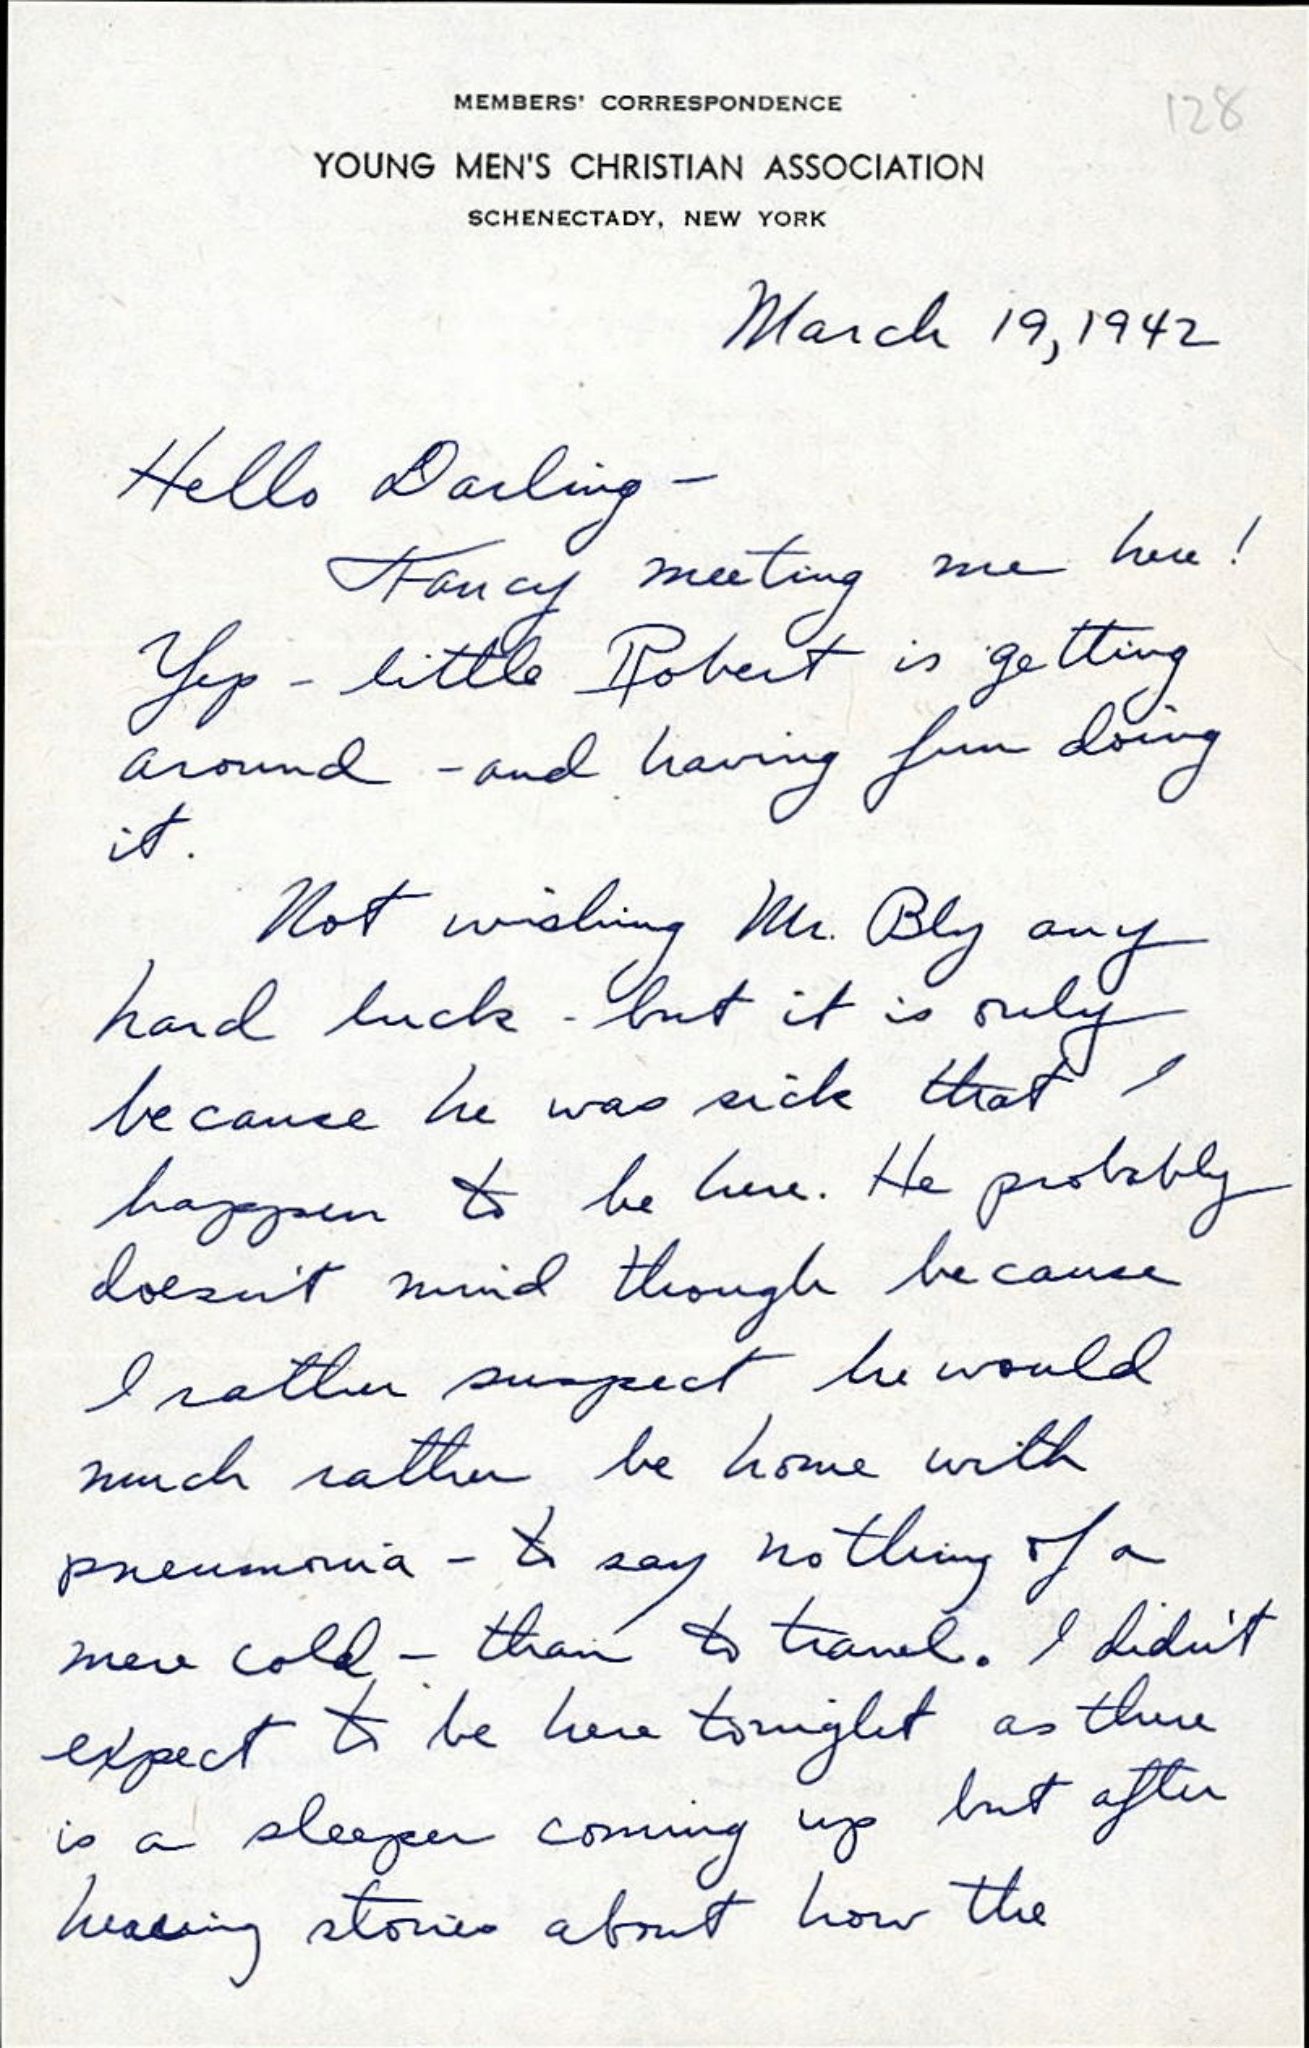 128
MEMBERS' CORRESPONDENCE
YOUNG MEN'S CHRISTIAN ASSOCIATION
SCHENECTADY, NEW YORK
March 19, 1942
Hello Darling -
Fancy meeting me here!
Yep - little Robert is getting
around - and having fun doing
it.
Not wishing Mr. Bly any
hard luck - but it is only
because he was sick that I
happen to be here. He probably
doesn't mind though because
I rather suspect he would
much rather be home with
pneumonia - to say nothing of a
mere cold - than to travel. I didn't
expect to be here tonight as there
is a sleeper coming up but after
hearing stories about how the